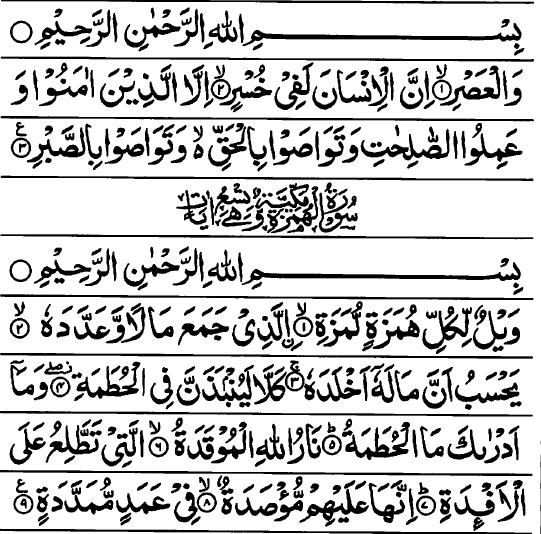 بِسْمِ اللهِ الرَّحْمٰنِ الرَّحِيْمِ ○
وَالْعَصْرِ ۙ﴿۱﴾ اِنَّ الْاِنْسَانَ لَفِيْ خُسْرٍ ۙ﴿۲﴾ اِلَّا الَّذِيْنَ اٰمَنُوْا وَ
عَمِلُوا الصّٰلِحٰتِ وَتَوَاصَوْا بِالْحَقِّ ۙ۬ وَتَوَاصَوْا بِالصَّبْرِ ﴿۳﴾ ع
سُوْرَةُ الْهُمَزَةِ مَكِّيَّةٌ وَّهِيَ تِسْعُ اٰيَاتٍ
بِسْمِ اللهِ الرَّحْمٰنِ الرَّحِيْمِ ○
وَيْلٌ لِّكُلِّ هُمَزَةٍ لُّمَزَةِ ۙ﴿۱﴾ ن الَّذِيْ جَمَعَ مَالًا وَّعَدَّدَهٗ ۙ﴿۲﴾
يَحْسَبُ اَنَّ مَالَهٗٓ اَخْلَدَهٗ ۚ﴿۳﴾ كَلَّا لَيُنْۢبَذَنَّ فِي الْحُطَمَةِ ﴿۴﴾ وَمَآ
اَدْرٰىكَ مَا الْحُطَمَةُ ؕ﴿۵﴾ نَارُ اللهِ الْمُوْقَدَةُ ۙ﴿۶﴾ الَّتِيْ تَطَّلِعُ عَلَى
الْاَفْـِٕدَةِ ؕ﴿۷﴾ اِنَّهَا عَلَيْهِمْ مُّؤْصَدَةٌ ۙ﴿۸﴾ فِيْ عَمَدٍ مُّمَدَّدَةٍ ﴿۹﴾ ع